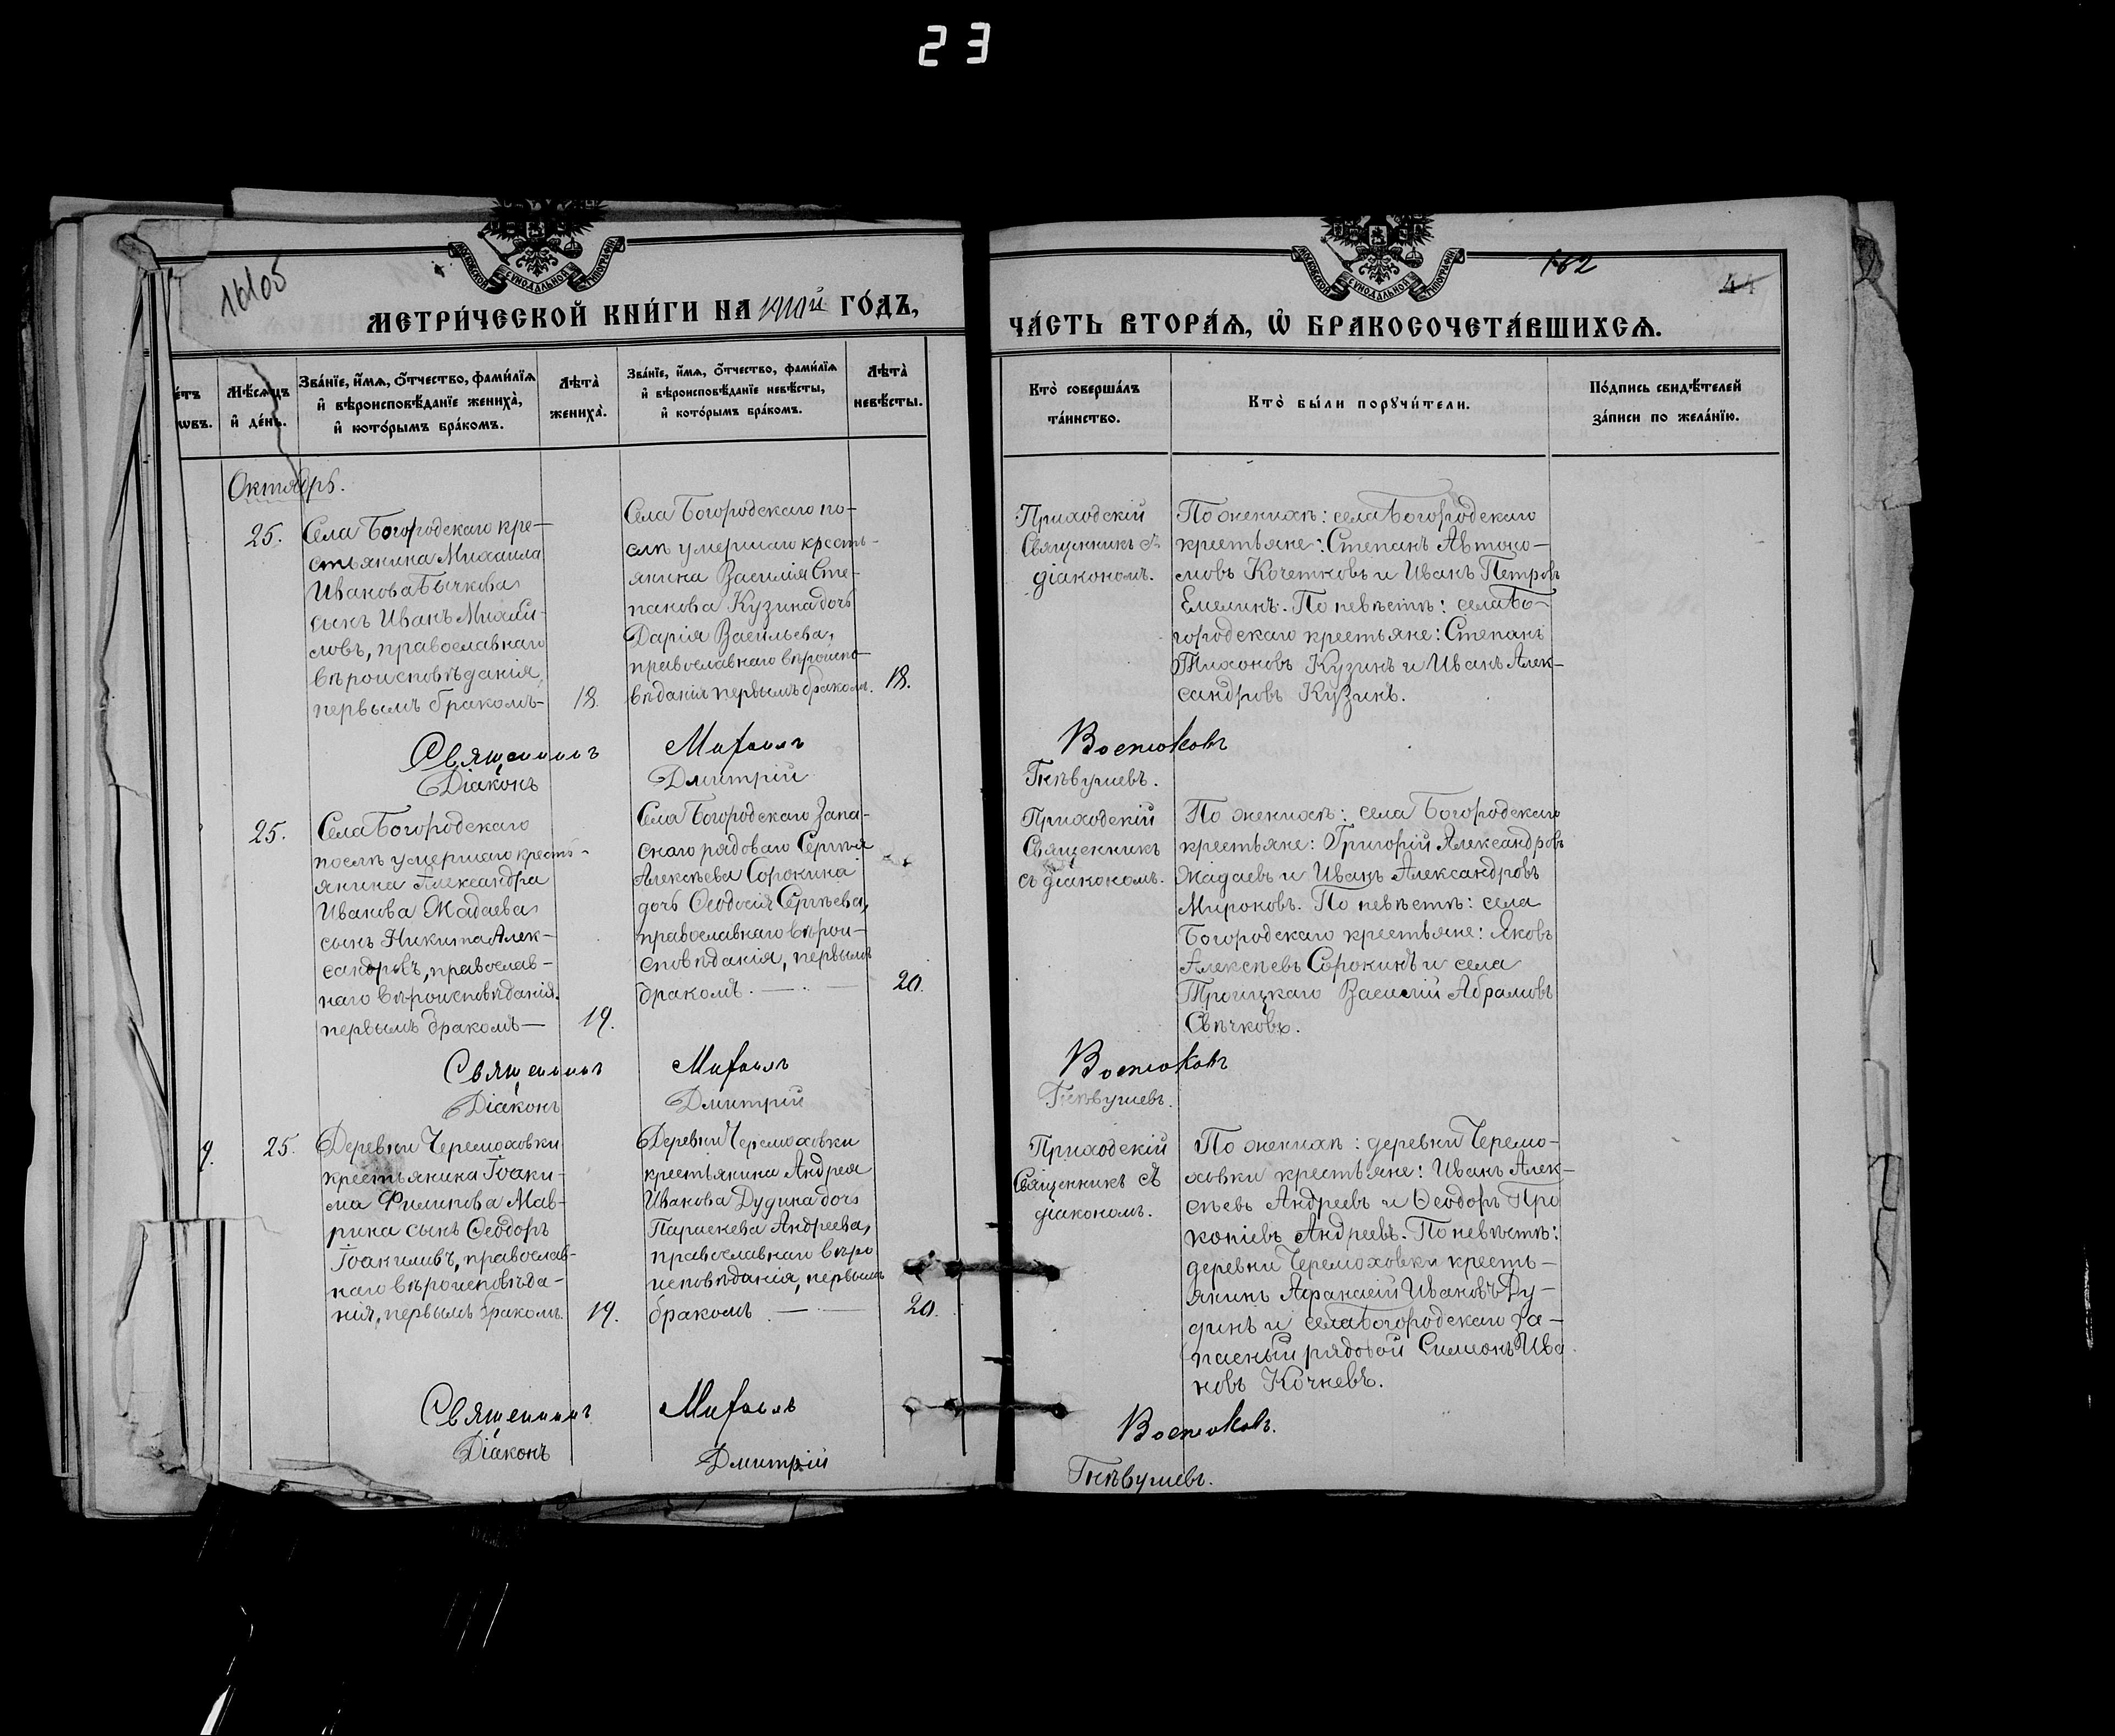 23
16105
162
44
МОСКОВСКОЙ СѴНОДАЛЬНОЙ ТИПОГРАФІИ
МОСКОВСКОЙ СѴНОДАЛЬНОЙ ТИПОГРАФІИ
МЕТРИ́ЧЕСКОЙ КНИ́ГИ НА 1910й ГО́ДЪ,
ЧА́СТЬ ВТОРА́Ѧ, Ѽ БРАКОСОЧЕТА́ВШИХСѦ.
е́тъ
ѡвъ.
Мѣ́сѧцъ
и҆ де́нь.
Зва́нїе, и҆́мѧ, ѻ҆́тчество, фами́лїѧ
и҆ вѣроисповѣ́данїе жениха̀,
и҆ кото́рымъ бра́комъ.
Лѣта̀
жениха̀.
Зва́нїе, и҆́мѧ, ѻ҆́тчество, фами́лїѧ
и҆ вѣроисповѣ́данїе невѣ́сты,
и҆ кото́рымъ бра́комъ.
Лѣта̀
невѣ́сты.
Кто̀ соверша́лъ
та́инство.
Кто̀ бы́ли порꙋчи́тели.
По́дпись свидѣ́телей
за́писи по жела́нїю.
Октябрь.
25.
Села Богородскаго кре-
стьянина Михаила
Иванова Бычкова
сынъ Иванъ Михай-
ловъ, православнаго
вѣроисповѣданія,
первымъ бракомъ-
18.
Села Богородскаго по-
слѣ умершаго кресть-
янина Василія Сте-
панова Кузина дочь
Дарія Васильева,
православнаго вѣроиспо-
вѣданія первымъ бракомъ.
18.
Приходскій
Священникъ съ
діакономъ.
По женихѣ: села Богородскаго
крестьяне: Степанъ Автоно-
мовъ Кочетковъ и Иванъ Петровъ
Емелинъ. По невѣстѣ: села Бо-
городскаго крестьяне: Степанъ
Тихоновъ Кузинъ и Иванъ Алек-
сандровъ Кузинъ.
Священникъ Михаилъ Востоковъ
Діаконъ Дмитрій Гнѣвушевъ.
25.
Села Богородскаго
послѣ умершаго кресть-
янина Александра
Иванова Жадаева
сынъ Никита Алек-
сандровъ, православ-
наго вѣроисповѣданія.
первымъ бракомъ—
19.
Села Богородскаго Запа-
снаго рядоваго Сергѣя
Алексѣева Сорокина
дочь Ѳеодосія Сергѣева,
православнаго вѣрои-
сповѣданія, первымъ
бракомъ. — . —
20.
Приходскій
Священникъ
съ діакономъ.
По женихѣ: села Богородскаго
крестьяне: Григорій Александровъ
Жадаевъ и Иванъ Александровъ
Мироновъ. По невѣстѣ: села
Богородскаго крестьяне: Яковъ
Алексѣевъ Сорокинъ и села
Троицкаго Василій Абрамовъ
Свѣчковъ.
Священникъ Михаилъ Востоковъ
Діаконъ Дмитрій Гнѣвушевъ.
9.
25.
Деревни Черемоховки
крестьянина Іоаки-
ма Филипова Мав-
рина сынъ Ѳеодоръ
Іоакимовъ, православ-
наго вѣроисповѣда-
нія, первымъ бракомъ.
19.
Деревни Черемоховки
крестьянина Андрея
Иванова Дудина дочь
Параскева Андреева,
православнаго вѣро
исповѣданія, первымъ
бракомъ. — . —
20.
Приходскій
Священникъ съ
діакономъ.
По женихѣ: деревни Черемо-
ховки крестьяне: Иванъ Алек-
сѣевъ Андреевъ и Ѳеодоръ Про
копіевъ Андреевъ. По невѣстѣ:
деревни Черемоховки кресть-
янинъ Афанасій Ивановъ Ду-
динъ и села Богородскаго за-
пасный рядовой Симіонъ Ива
новъ Кочневъ.
Священникъ Михаилъ Востоковъ.
Діаконъ Дмитрій Гнѣвушевъ.